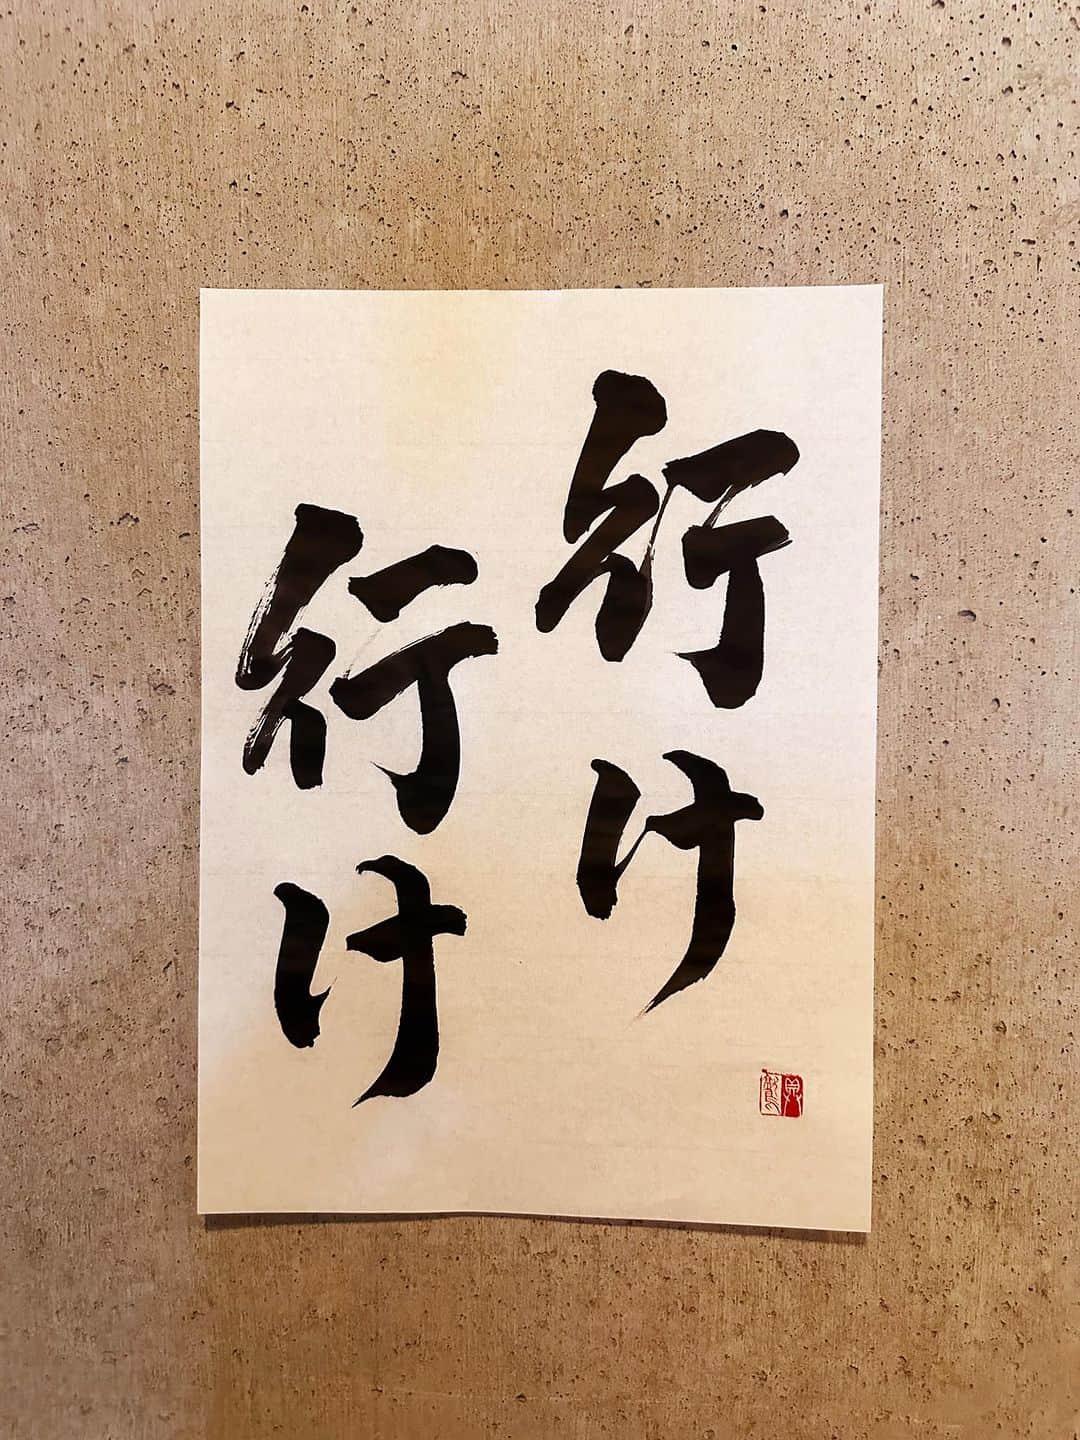 行け
行け